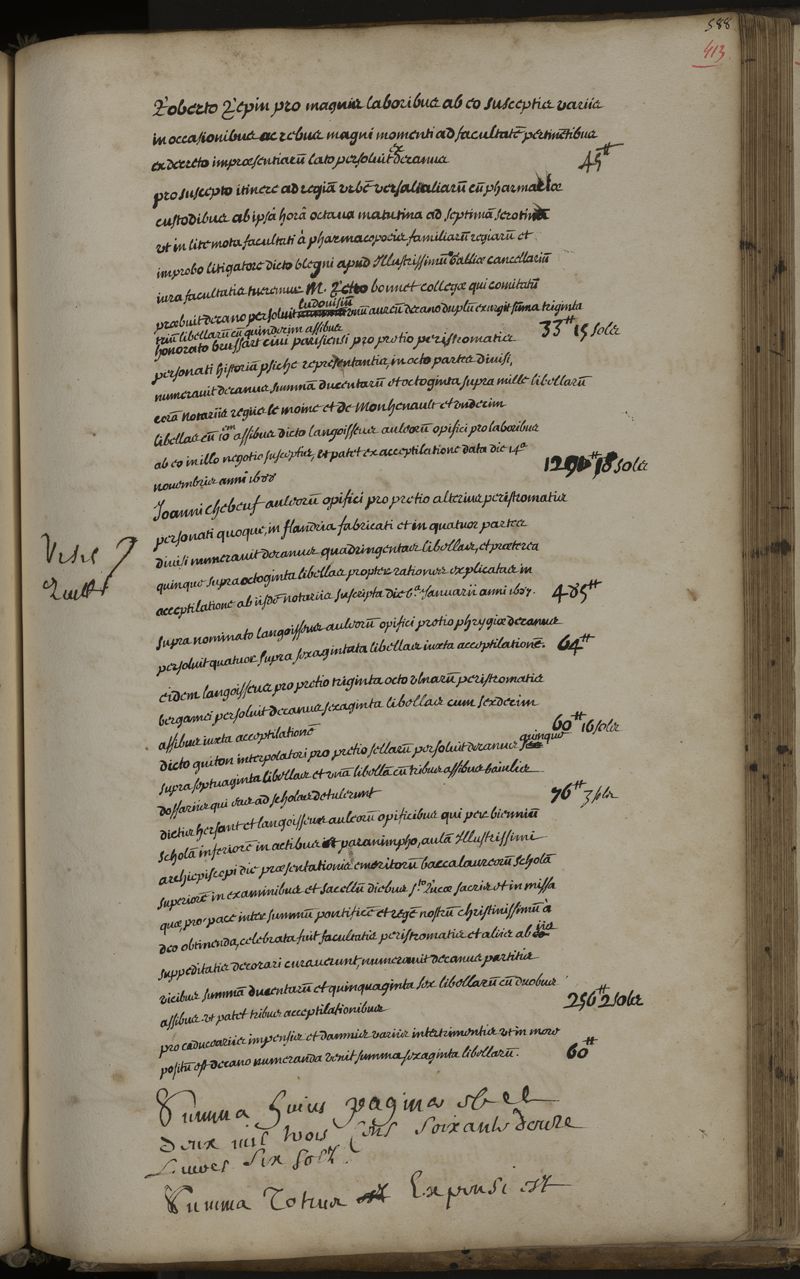 588
413
Roberto Pepin pro magnis laboribus ab eo susceptis variis
in occasionibus ac rebus magni momenti ad facultatē pertinētibus
ex decreto in præsentiarū lato persoluit decanus 45 ₶
pro suscepto itinere ad regiā urbē versaliarū cū pharmaciæ
custodibus ab ipsâ horâ octava matutina ad septimā serotinā
ut in lite mota facultati à pharmacopœis familiarū regiarū et
improbo litigatore dicto blegni apud Illustrissimū Galliæ cancellariū
iura facultatis tueremur M. Petro bonnet collegæ qui comitatū
præbuit decano persoluit ludovisiū unū aureū decano duplū exurgit sūma triginta
triū libellarū cū quindecim assibus 33 ₶ 15 sols
honorato brussart civi parisiensi pro pretio peristromatis
personati historiā psiche repręsentantis, in octo partes divisi,
numeravit decanus summā ducentarū et octoginta supra mille libellarū
corā notariis regiis le moine et de Monhenault et undecim
libellas cū 18 assibus dicto langoisseux aulæorū opifici pro laboribus
ab eo in illo negotio susceptis, ut patet ex acceptilatione data die 14ᵃ
novembris anni 1688 1291 ₶ 18 sols
Joanni chebeuf aulæorū opifici pro pretio alterius peristromatis
personati quoque, in flandria fabricati et in quatuor partes
divisi numeravit decanus quadringentas libellas, et præterea
quinque supra octoginta libellas propter rationes explicatas in
acceptilatione ab iisdē notariis suscripta die 6ᵃ Januarii anni 1687. 485 ₶
supra nominato langoisseux aulæorū opifici pretio phrygiæ decanus
persoluit quatuor supra sexagintata libellas iuxta acceptilationē. 64 ₶
eidem langoisseux pro pretio triginta octo ulnarū peristromatis
bergamei persoluit decanus sexaginta libellas cum sexdecim
assibus iuxta acceptilationē 60 ₶ 16 sols
dicto quiton interpolatori pro pretio sellarū persoluit decanus quinque
supra septuaginta libellas et unā libellā cū tribus assibus baiulis
dossariis qui eas ad scholas detulerunt 76 ₶ 3 sols
dictis hersant et langoisseux aulæorū opificibus qui per bienniū
scholā inferiorē in actibus et paranimpho, aulā Illustrissimi
archiepiscopi die præsentationis emeritorū baccalaureorū scholā
superiorē in examinibus et sacellū diebus sᵗᵒ Lucæ sacris et in missa
quæ pro pace inter summū pontificē et regē nostrū christinissimū à
deo obtinenda, celebrata fuit facultatis peristromatis et aliis ab iis
suppeditatis decorari curaverunt, numeravit decanus partitis
vicibus summā ducentarū et quinquaginta sex libellarū cū duobus
assibus ut patet tribus acceptilationibus 256 ₶ 2 sols
pro caducariis impensis et damnis variis intertrimentis ut in more
positū est decano numeranda venit summa sexaginta libellarū. 60 ₶
Summa huius paginæ est
Deux mil trois cens soixante douze
Livres six solz.
Summa Totius Expensi est